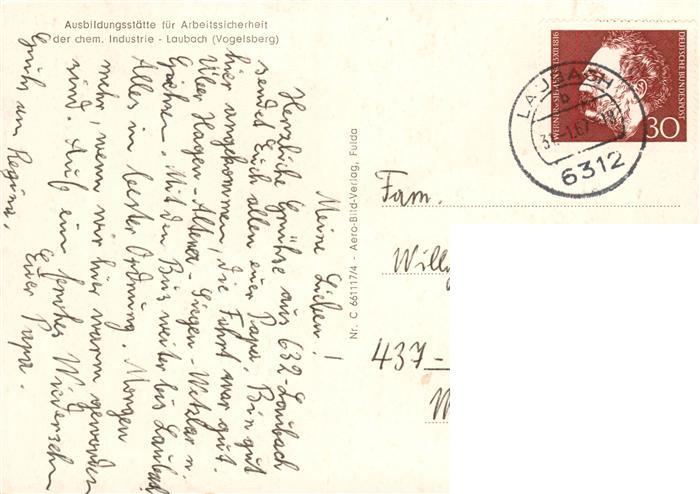 Ausbildungsstätte für Arbeitssicherheit
der chem. Industrie - Laubach (Vogelsberg)
Meine Lieben!
Herzliche Grüße aus 632-Laubach
sendet Euch allen euer Papa. Bin gut
hier angekommen, die Fahrt war gut.
Über Hagen-Altena-Siegen-Wetzlar n.
Giehsen. Mit den Bus weiter bis Laubach
Alles in bester Ordnung. Morgen
mehr, wenn wir hier warm geworden
sind. Auf ein frohes Wiedersehn
Euer Papa.
Gruß um Regina.
Nr. C 661117/4 - Aero-Bild-Verlag, Fulda
WERNER v. SIEMENS 13.XII.1816
DEUTSCHE BUNDESPOST
30
LAUBACH
b
6312
Fam.
Willy
437-